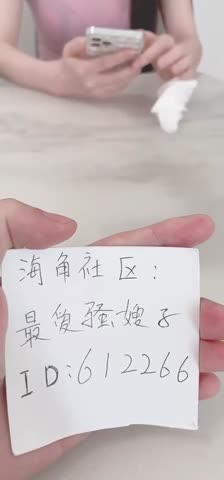 海角社区:
最后骚嫂子
ID:612266